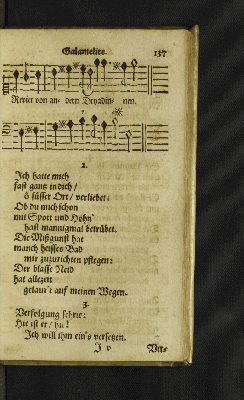 Galamelite. 137
Revier von an- dern Dryadin- nen.
2.
Ich hatte mich
fast gantz in dich/
ô süsser Ort/ verliebet:
Ob du mich schon
mit Spott und Hohn
hast mannigmal betrübet.
Die Mißgunst hat
manch heisses Bad
mir zuzurichten pflegen:
Der blasse Neid
hat allezeit
gelaur't auf meinen Wegen.
3.
Verfolgung schrie:
Hie ist er/ hu!
Ich will ihm ein's versetzen.
I v Ver-